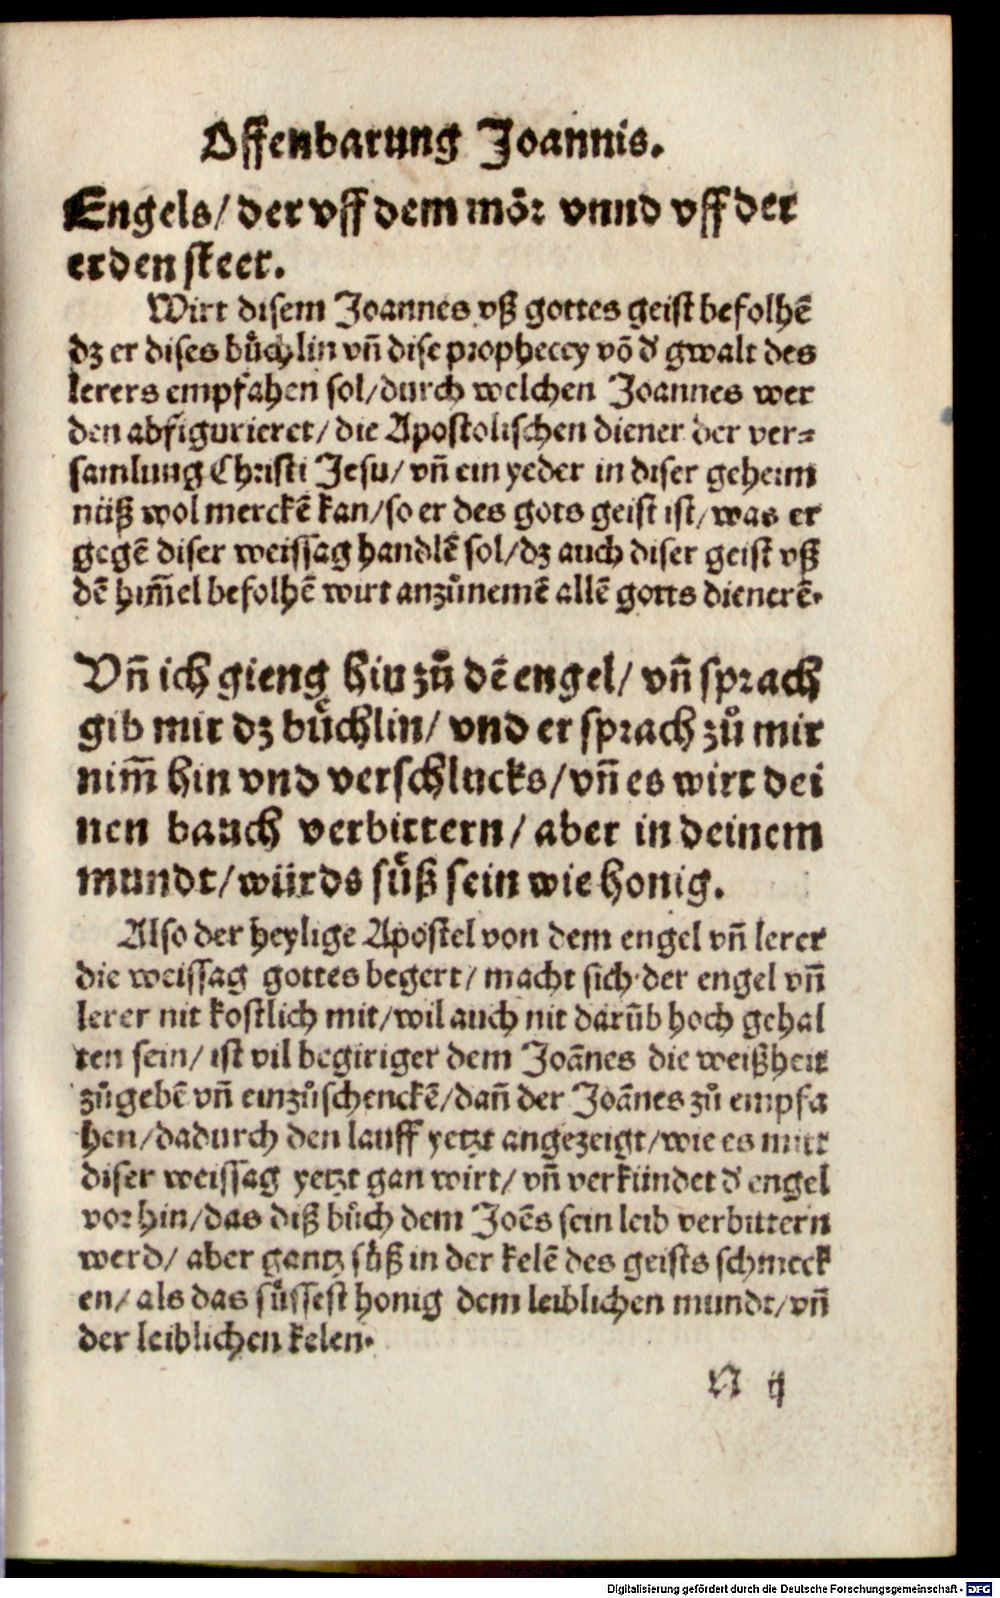 Offenbarung Joannis.
Engels/ der vff dem mör vnnd vff der
erden steet.
Wirt disem Joannes vß gottes geist befolhē
dz er dises bůchlin vñ dise propheccy vō d' gwalt des
lerers empfahen sol/durch welchen Joannes wer
den abfigurieret/ die Apostolischen diener der ver=
samlung Christi Jesu/ vñ ein yeder in diser geheim
nüß wol merckē kan/so er des gots geist ist/ was er
gegē diser weissag handlē sol/dz auch diser geist vß
dē him̄el befolhē wirt anzůnemē allē gotts dienerē.
Vñ ich gieng hin zů dē engel/ vñ sprach
gib mir dz bůchlin/ vnd er sprach zů mir
nim̄ hin vnd verschlucks/vñ es wirt dei
nen bauch verbittern/ aber in deinem
mundt/würds sůß sein wie honig.
Also der heylige Apostel von dem engel vñ lerer
die weissag gottes begert/ macht sich der engel vñ
lerer nit kostlich mit/wil auch nit darūb hoch gehal
ten sein/ ist vil begiriger dem Joānes die weißheit
zůgebē vñ einzůschenckē/dañ der Joānes zů empfa
hen/dadurch den lauff yetzt angezeigt/wie es mitt
diser weissag yetzt gan wirt/ vñ verkündet d' engel
vorhin/das diß bůch dem Joēs sein leib verbittern
werd/ aber gantz sůß in der kelē des geists schmeck
en/ als das sůssest honig dem leiblichen mundt/vñ
der leiblichen kelen.
N ij
Digitalisierung gefördert durch die Deutsche Forschungsgemeinschaft - DFG